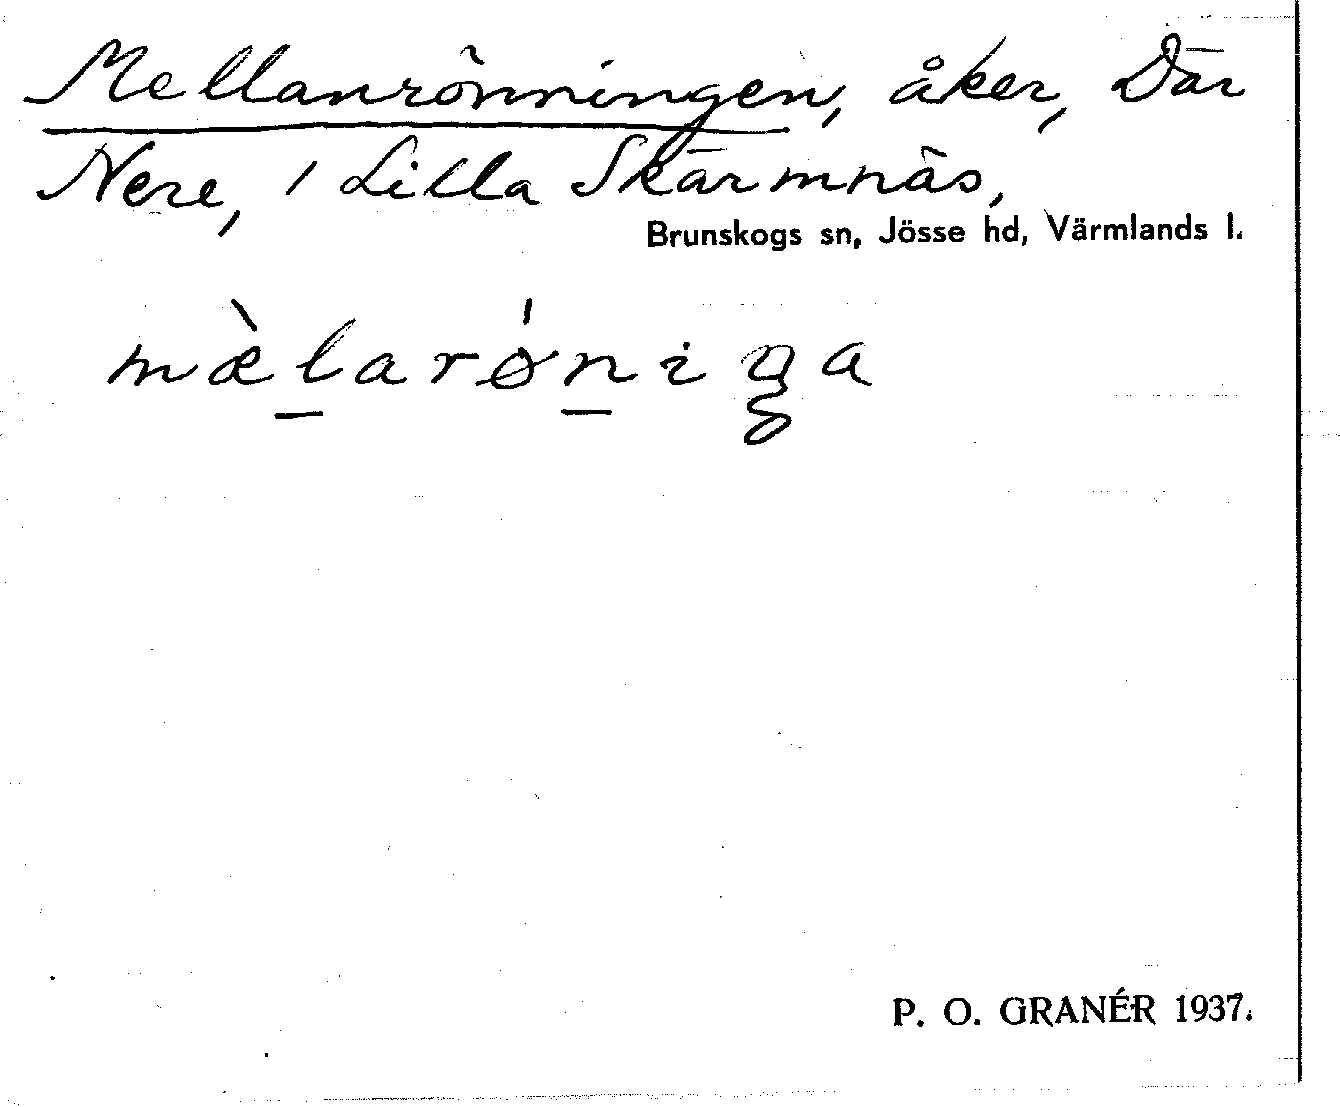 Mellanrönningen, åker, Där
Nere, 1 Lilla Skärmnäs,
Brunskogs sn, Jösse hd, Värmlands l.
mæ̀l̲arǿn̲iga
P. O. GRANÉR 1937.